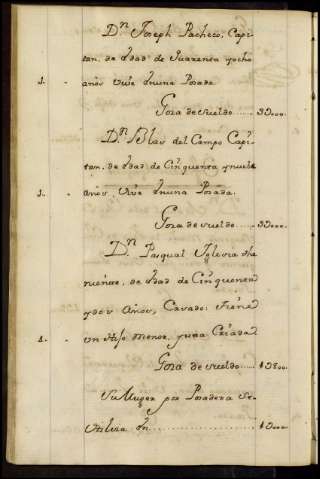 Dⁿ Joseph Pacheco, Capi-
tan, de Edad de Quarenta y ocho
1. - años vive en una Posada
Goza de sueldo..... 3Ɔooo.
Dⁿ Blas del Campo Capi-
tan, de Edad de Cinquenta y nueve
1. - años, vive en una Posada.
Goza de sueldo..... 3Ɔooo.
Dⁿ Pasqual Yglesia the-
niente, de Edad de Cinquenta
y dos años, Casado: tiene
1. - un Hijo menor, y una Criada
Goza de sueldo.....
Su Muger por Posadera se
Utiliza en